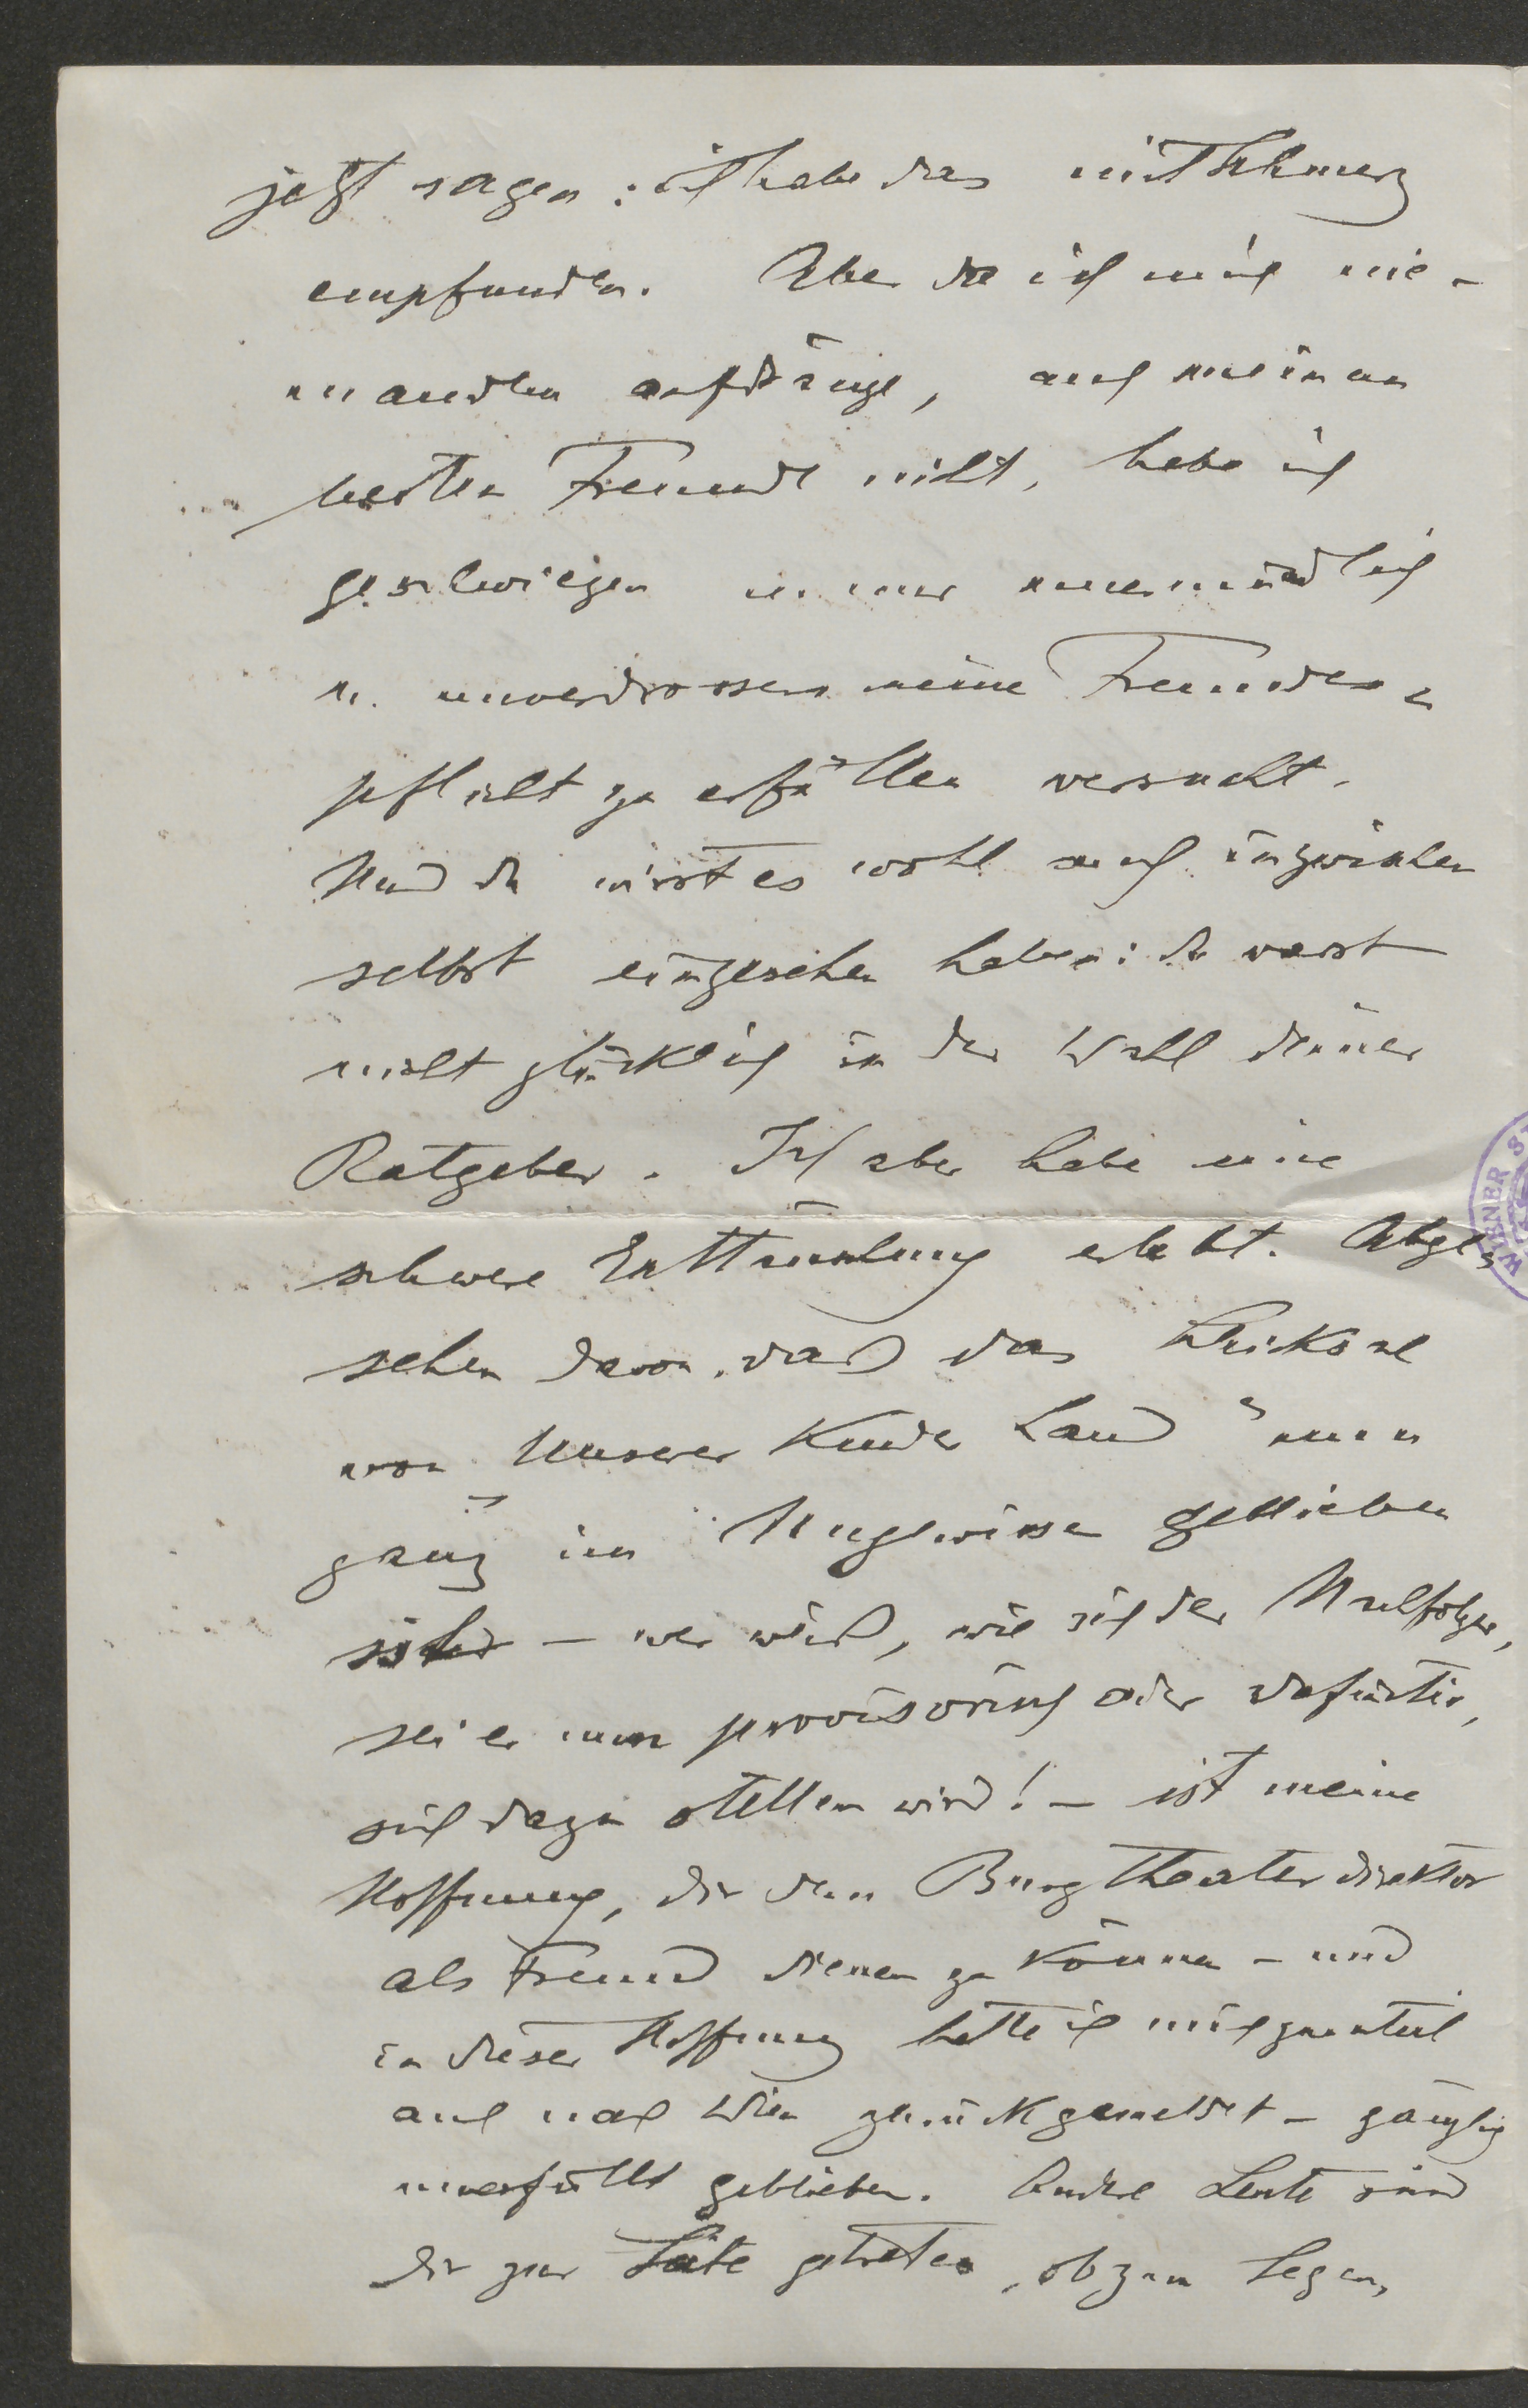 jetzt sagen: ich habe das mit Schmerz
empfunden. Aber da ich mich nie-
manden aufdränge, auch meinem
besten Freunde nicht, habe ich
geschwiegen u. nur unermüdlich
u. unverdrossen meine Freundes-
pflicht zu erfüllen versucht.
Und du wirst es wohl auch inzwischen
selbst eingesehen haben: du warst
nicht glücklich in der Wahl deiner
Ratgeber. Ich aber habe eine
schwere Enttäuschung erlebt. Abge-
sehen davon, daß das Schicksal
von „Unserer Kinder Land“ nun
ganz im Ungewissen geblieben
ist – wer weiß, wie sich der Nachfolger,
sei er nun provisorisch oder definitiv,
sich dazu stellen wird! – ist meine
Hoffnung, dir dem Burgtheaterdirektor
als Freund dienen zu können – und
in dieser Hoffnung hatte ich mich zumteil
auch nach Wien zurückgemeldet – gänzlich
unerfüllt geblieben. Andre Leute sind
dir zur Seite getreten, ob zum Segen,
WIENER S